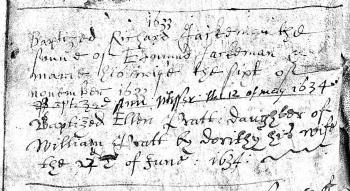 1633
Baptized Richard Jackeman the
sonne of Edmund Jackeman
marie his wife the sixt of
november 1633
Baptized Ann the 12 of may 1634
Baptized Ellen Pratt: daughter of
William Pratt by dorithy his wife
the of June: 1634: